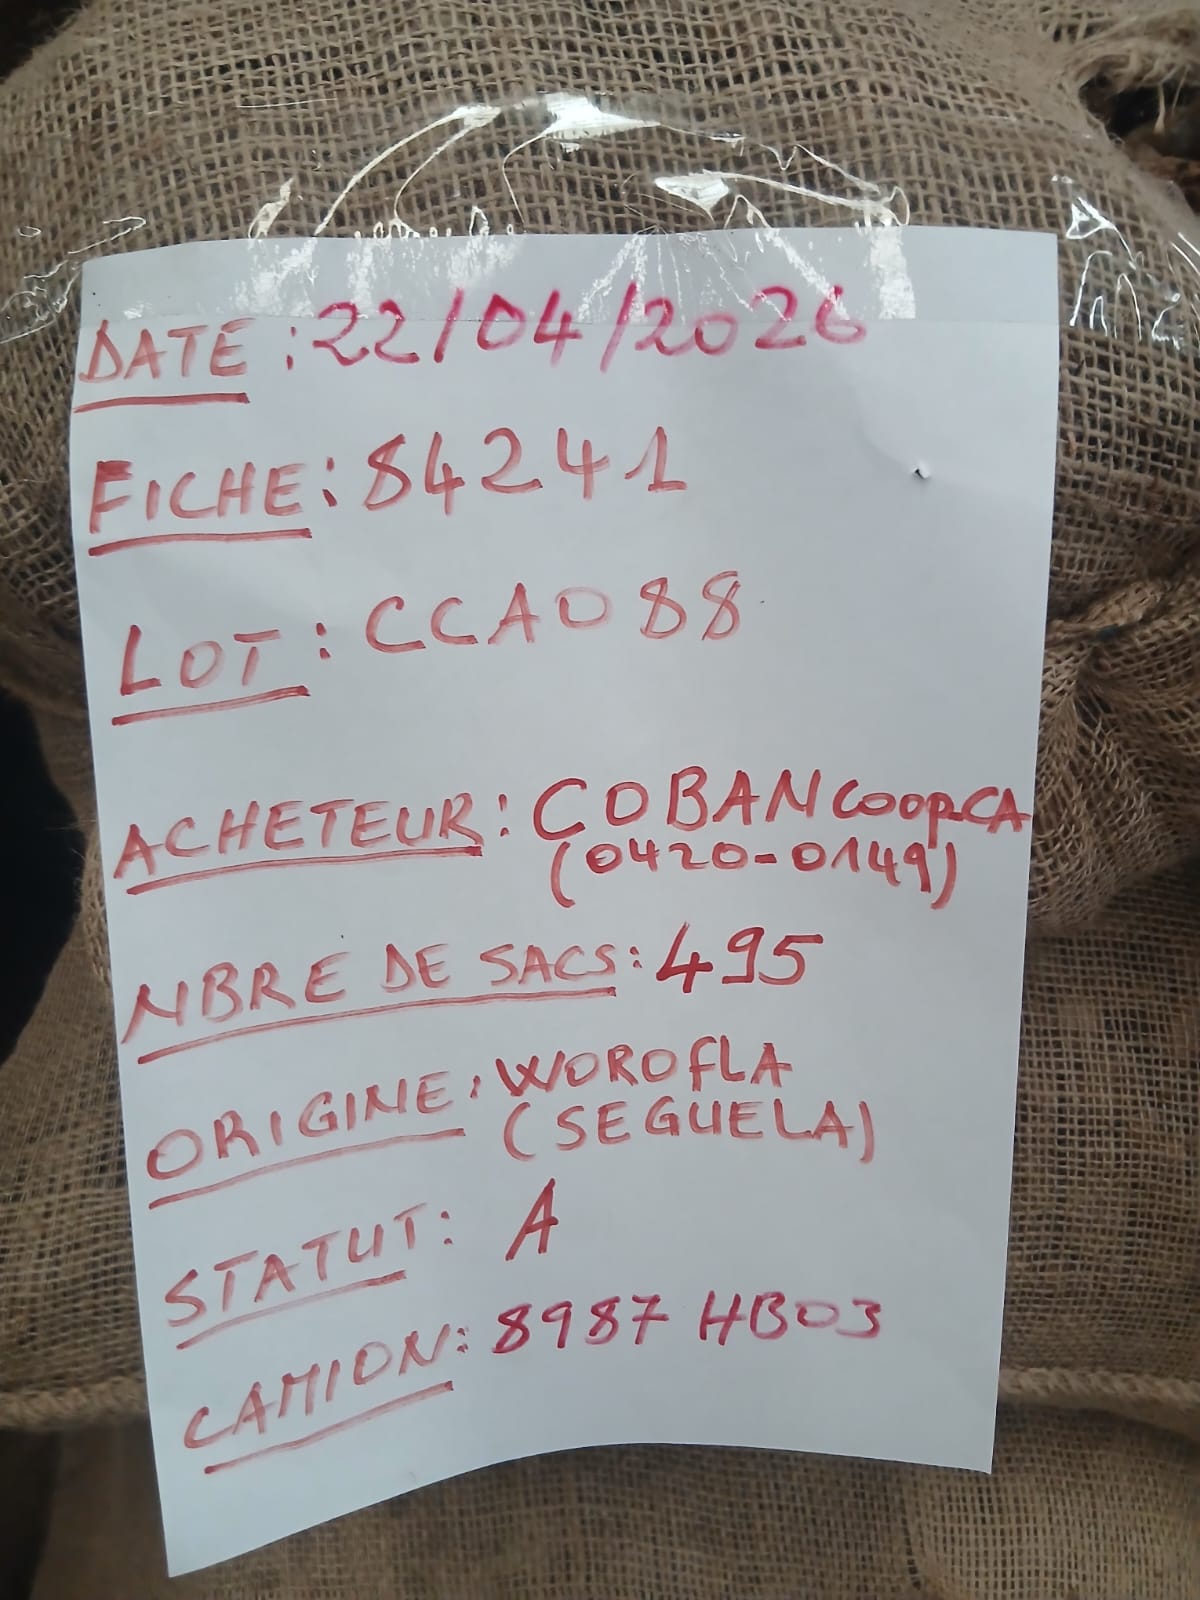 DATE : 22/04/2026
FICHE : 84241
LOT : CCA088
ACHETEUR : COBAN COOP.CA
(0420-0149)
NBRE DE SACS : 495
ORIGINE : WOROFLA
(SEGUELA)
STATUT : A
CAMION : 8987 HB03